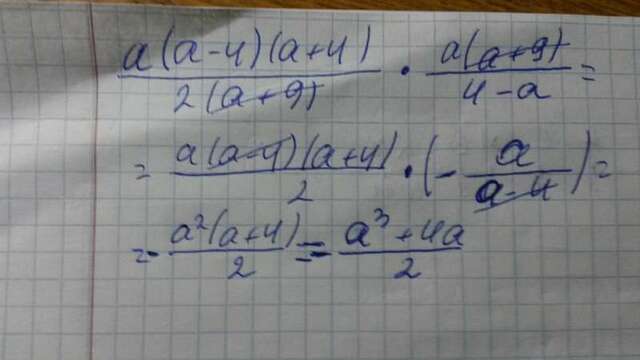 a(a-4)(a+4)/2(a+9) · a(a+9)/4-a =
= a(a-4)(a+4)/2 · (- a/a-4) =
= - a²(a+4)/2 = a³+4a/2